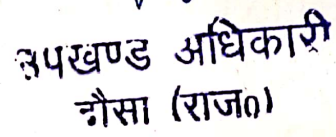 उपखण्ड अधिकारी
दौसा (राज0)